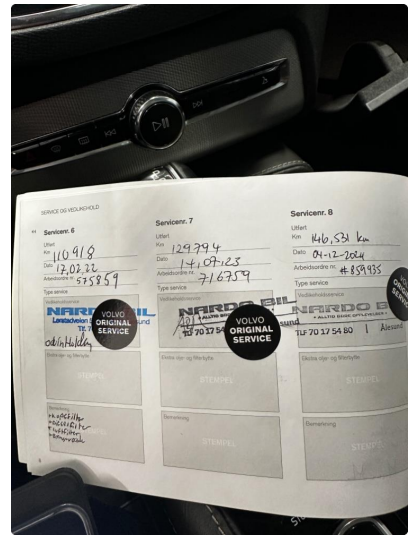 SERVICE OG VEDLIKEHOLD
Servicenr. 6
Utført
Km 110918
Dato 17,02.22
Arbeidsordre nr. 575859
Type service
Vedlikeholdsservice
NARDO BIL
VOLVO
ORIGINAL
SERVICE
Ekstra olje- og filterbytte
STEMPEL
Bemerkning
Servicenr. 7
Utført
Km 129794
Dato 14,07.23
Arbeidsordre nr. 716759
Type service
Vedlikeholdsservice
NARDO BIL
TLF 70 17 54
VOLVO
ORIGINAL
SERVICE
Ekstra olje- og filterbytte
STEMPEL
Bemerkning
STEMPEL
Servicenr. 8
Utført
Km 146,531 km
Dato 04-12-2024
Arbeidsordre nr. #859935
Type service
Vedlikeholdsservice
NARDO B
TLF 70 17 54 80 | Ålesund
VOLVO
ORIGINAL
SERVICE
Ekstra olje- og filterbytte
STEMPEL
Bemerkning
STEMPEL